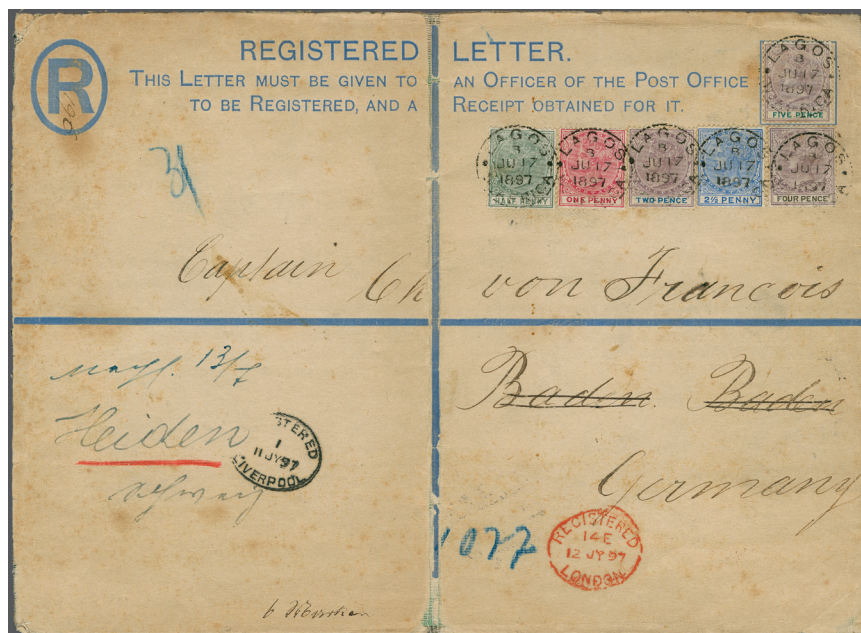 R
REGISTERED LETTER.
THIS LETTER MUST BE GIVEN TO AN OFFICER OF THE POST OFFICE
TO BE REGISTERED, AND A RECEIPT OBTAINED FOR IT.
LAGOS
JU 17
1897
FIVE PENCE
LAGOS
JU 17
1897
HALF PENNY
LAGOS
JU 17
1897
ONE PENNY
LAGOS
JU 17
1897
TWO PENCE
LAGOS
JU 17
1897
2½ PENNY
LAGOS
JU 17
1897
FOUR PENCE
Captain Ch von Francois
13/7
Baden. Baden
Heiden
STERED
1
11 JY 97
LIVERPOOL
Germany
1077
REGISTERED
14E
12 JY 97
LONDON